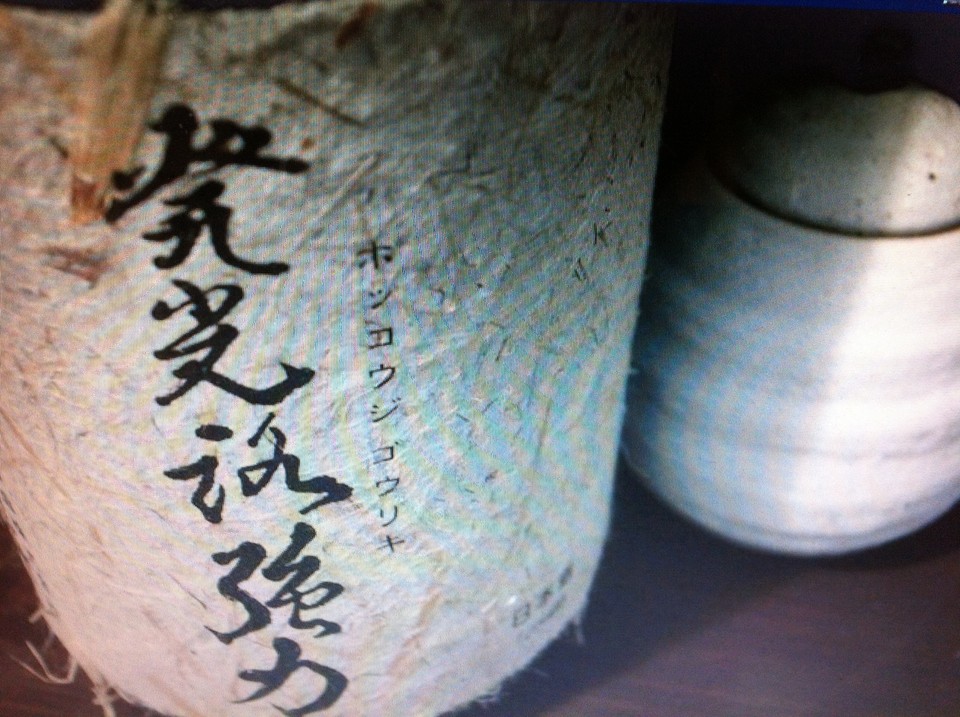 發光路強力
ホッコウジゴウリキ
日本酒